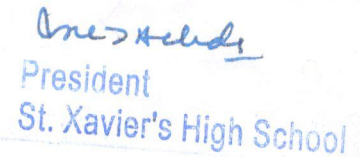 President
St. Xavier's High School